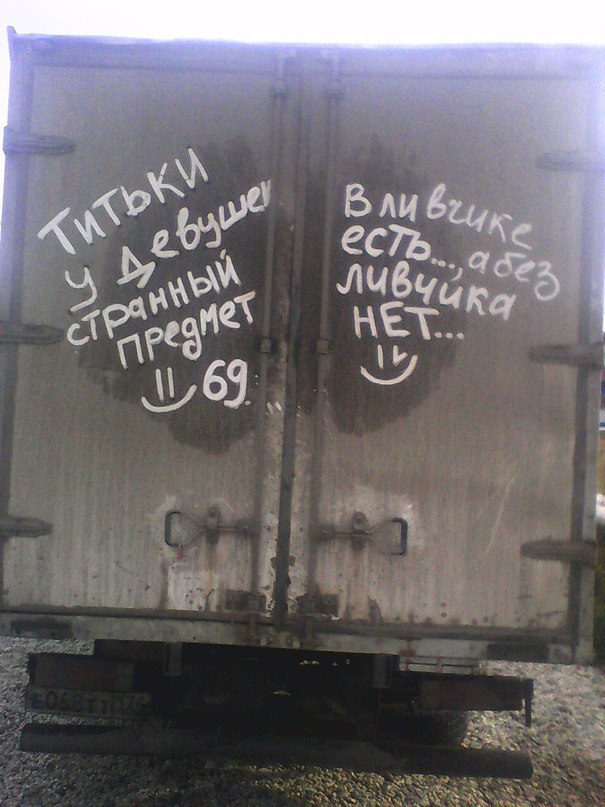 Титьки
у девушек
странный
предмет
69
В ливчике
есть..., а без
ливчика
НЕТ...